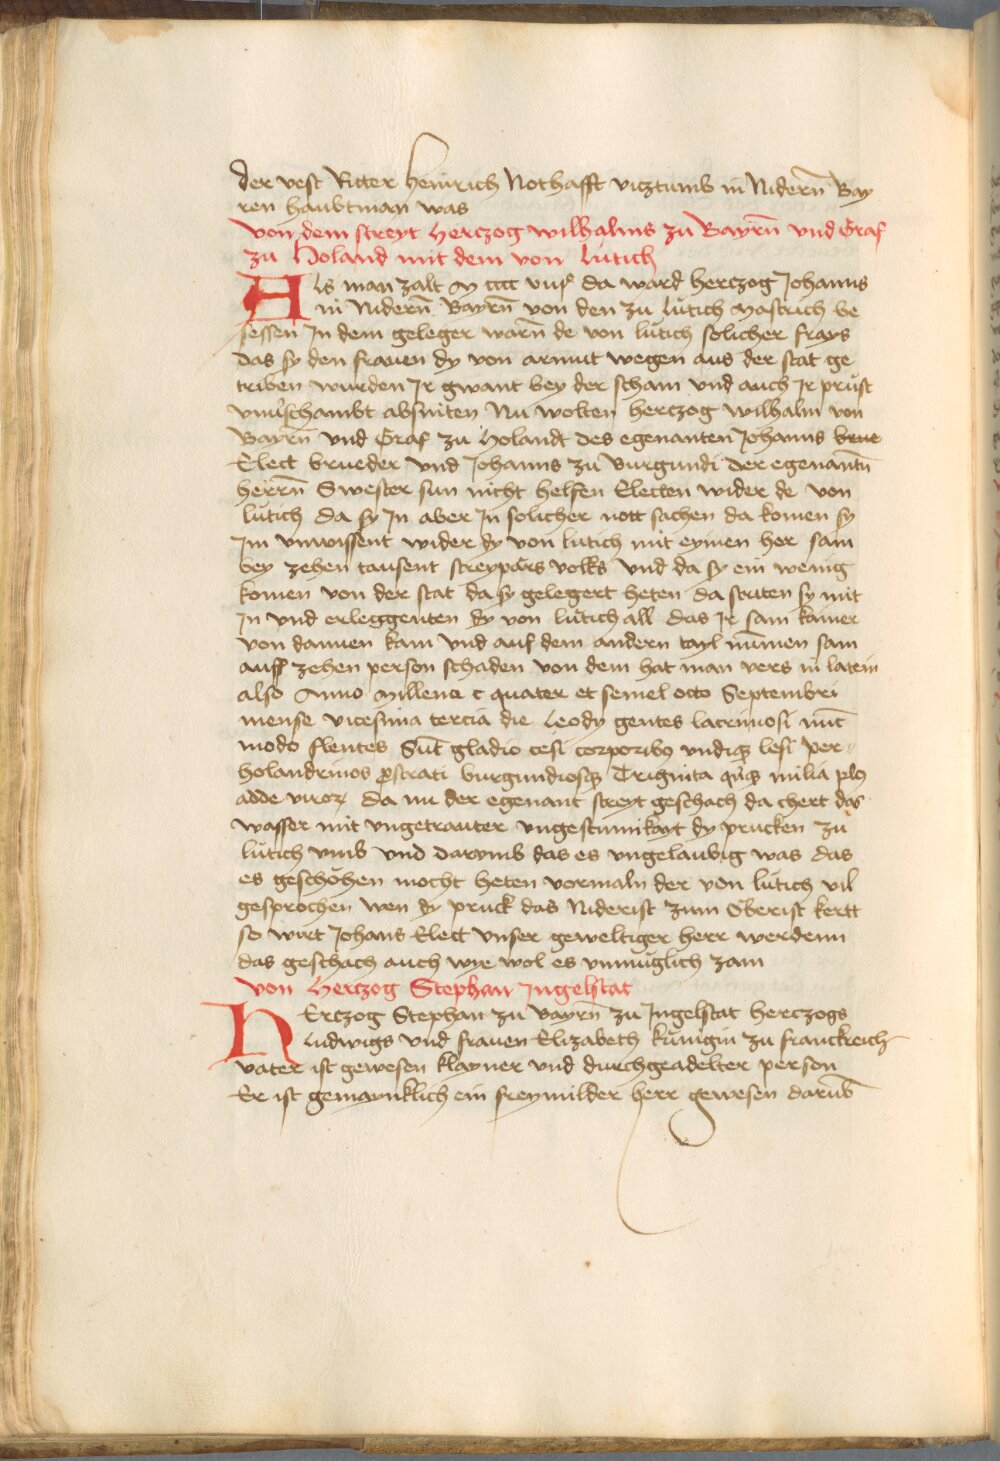 der vest Ritter heinrich Nothafft viztumb in Nidern̄ Bay
ren haubtman was
Von dem streyt Herczog wilhalms zu Bayrn̄ vnd Graf
zu Holand mit dem von Lutich
Als man zalt M cccc viiiº da ward herczog Johanns
in Nidern̄ Bayrn̄ von den zu Lutich Mastrich be
sessen In dem geleger warn̄ de von lutich solicher frays
das sy den frawen dy von armut wegen aus der stat ge
triben wurden Ir gwant bey der scham vnd auch Ir prust
vnuschambt absniten Nu wolten herczog wilhalm von
Bayrn̄ vnd Graf zu Holandt des egenanten Johanns brue
Elect brueder vnd Johanns zu Burgundi der egenantn̄
herrn̄ Swester sun nicht helfen Electen wider de von
lutich da sy In aber In solicher nott sachen da komen sy
Im vnwissent wider dy von lutich mit eynem her sam
bey zehen tausent streypars volks vnd da sy ein wenig
komen von der stat da sy gelegert heten da striten sy mit
In vnd erleggenten dy von lutich all das Ir sam kainer
von dannen kam vnd auf dem andern tayl nūmen sam
auff zehen person schaden von dem hat man vers in latein
also Anno Milleno c quater et semel octo Septembri
mense vicesima tercia die Leody gentes lacrimosi nūc
modo flentes Sūt gladio cesi corporibꝫ vndiqꝫ lesi per
holandrinos ꝓstrati burgundiosqꝫ Triginta qꝫ milia plꝫ
adde viroꝝ da nu der egenant streyt geschach da chert das
wasser mit vngetrauter vngestumikayt dy prucken zu
lutich vmb vnd darvmb das es vngelaubig was das
es geschohen mocht heten vormaln der von lutich vil
gesprochen wen dy pruck das Niderist zum Oberist kertt
so wirt Johans Elect vnser geweltiger herr werdenn
das geschach auch wye wol es vnmuglich zam
Von Herczog Stephan Ingelstat
HErczog Stephan zu Bayrn̄ zu Ingelstat herczogs
Ludwigs vnd frawen Elizabeth kunigin zu franckreich
vater ist gewesen klayner vnd durchgeadelter person
Er ist gemaynklich ein freymilder herr gewesen darūb